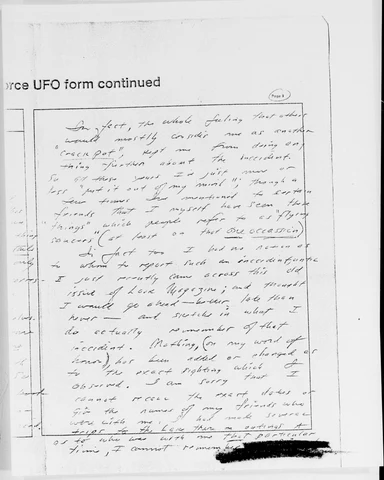 orce UFO form continued
Page 2
In fact, the whole feeling that others
would mostly consider me as another
"crack pot", kept me from doing any
thing further about the incident.
So all these years I'd just more or
less "put it out of my mind"; though a
few times I've mentioned to certain
friends that I myself have seen those
things which people refer to as "flying
saucers" (at least on that one occassion)
In fact too I had no notion as
to whom to report such an incident until
I just recently came across this old
issue of Look Magazine; and thought
I would go ahead—better late than
never— and sketch in what I
do actually remember of that
incident. Nothing, (on my word of
honor) has been added or changed as
to the exact sighting which I
observed. I am sorry that I
cannot recall the exact dates or
give the names of my friends who
were with me. I had made several
trips to the Lake there on outings &
as to who was with me that particular
time, I cannot remember